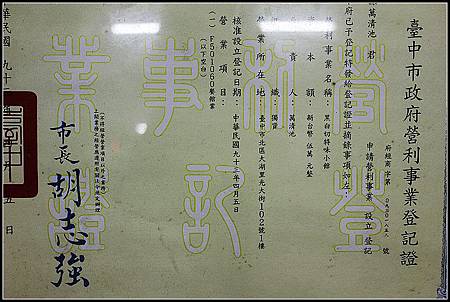 臺中市政府營利事業登記證
府經商字第 號
申請營利事業 設立 登記
萬清池 君
府已予登記特發給登記證並摘錄事項如左:
利事業名稱:黑白切料味小館
本額:新台幣 伍萬 元整
責人:萬清池
織:獨資
營業所在地:臺中市北區大湖里光大街102號1樓
核准設立登記日期:中華民國九十三年四月五日
營業項目:
(一)F501060餐館業
(以下空白)
市長 胡志強
華民國 九十 五 日